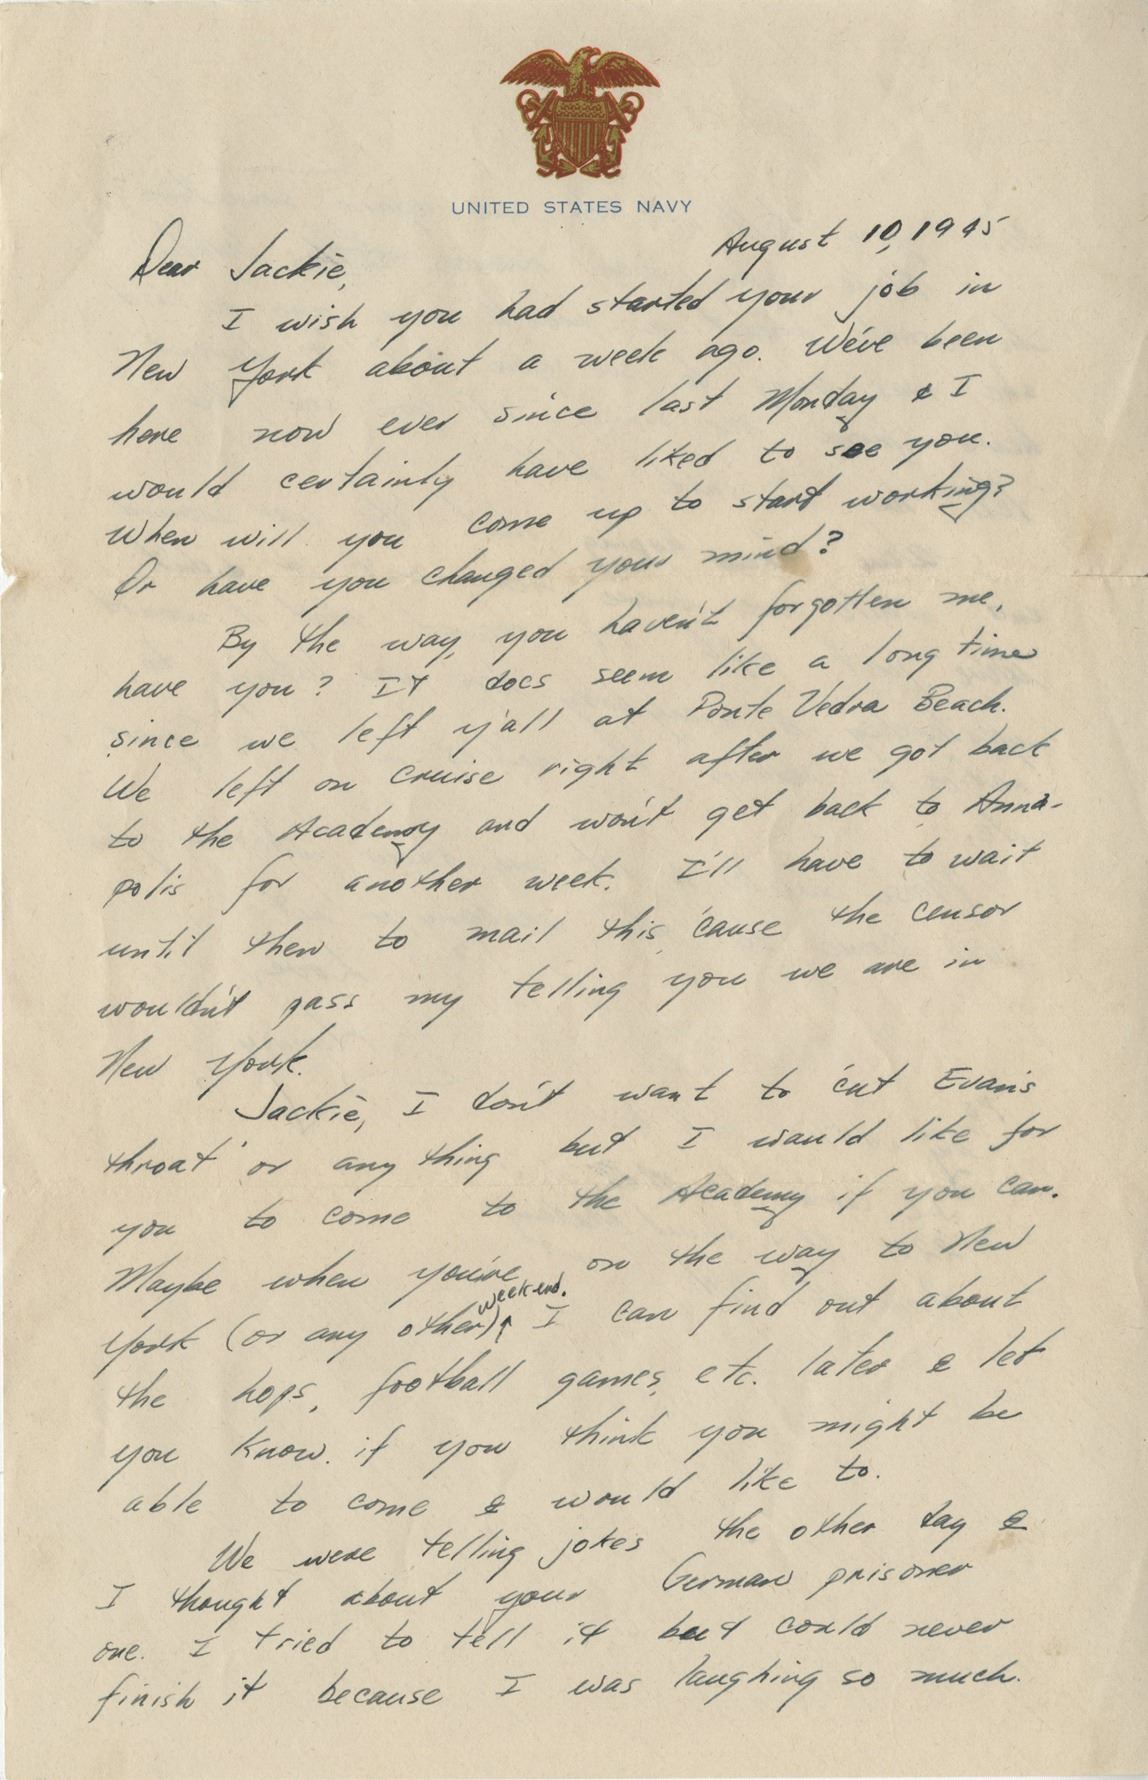 UNITED STATES NAVY
August 10, 1945
Dear Jackie,
I wish you had started your job in
New York about a week ago. We've been
here now ever since last Monday & I
would certainly have liked to see you.
When will you come up to start working?
Or have you changed your mind?
By the way, you haven't forgotten me,
have you? It does seem like a long time
since we left y'all at Ponte Vedra Beach.
We left on cruise right after we got back
to the Academy and won't get back to Anna-
polis for another week. I'll have to wait
until then to mail this 'cause the censor
wouldn't pass my telling you we are in
New York.
Jackie, I don't want to 'cut Evan's
throat' or any thing but I would like for
you to come to the Academy if you can.
Maybe when you're on the way to New
week-end.
York (or any other) I can find out about
the hops, football games, etc. later & let
you know if you think you might be
able to come & would like to.
We were telling jokes the other day &
I thought about your German prisoner
one. I tried to tell it but could never
finish it because I was laughing so much.